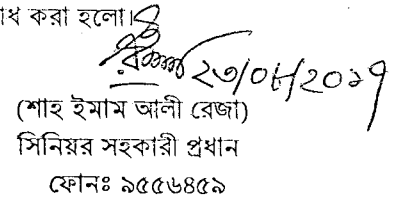 ধ করা হলো।
২৩/০৮/২০১৭
(শাহ ইমাম আলী রেজা)
সিনিয়র সহকারী প্রধান
ফোনঃ ৯৫৫৬৪৫৯